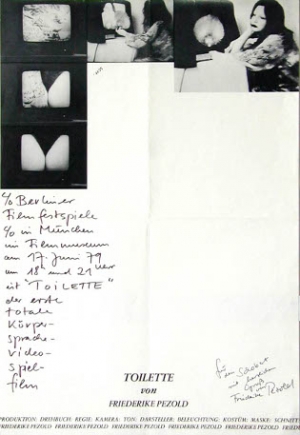 % Berliner
Filmfestspiele
% in München
im Filmmuseum
am 17. Juni 79
um 18 und 21 Uhr
ist "TOILETTE"
der erste
totale
Körper-
sprache-
video-
spiel-
film
für
mit herzlichem
Gruß
von
Friederike Pezold
TOILETTE
von
FRIEDERIKE PEZOLD
PRODUKTION: DREHBUCH: REGIE: KAMERA: TON: DARSTELLER: BELEUCHTUNG: KOSTÜM: MASKE: SCHNITT:
FRIEDERIKE PEZOLD FRIEDERIKE PEZOLD FRIEDERIKE PEZOLD FRIEDERIKE PEZOLD FRIEDERIKE